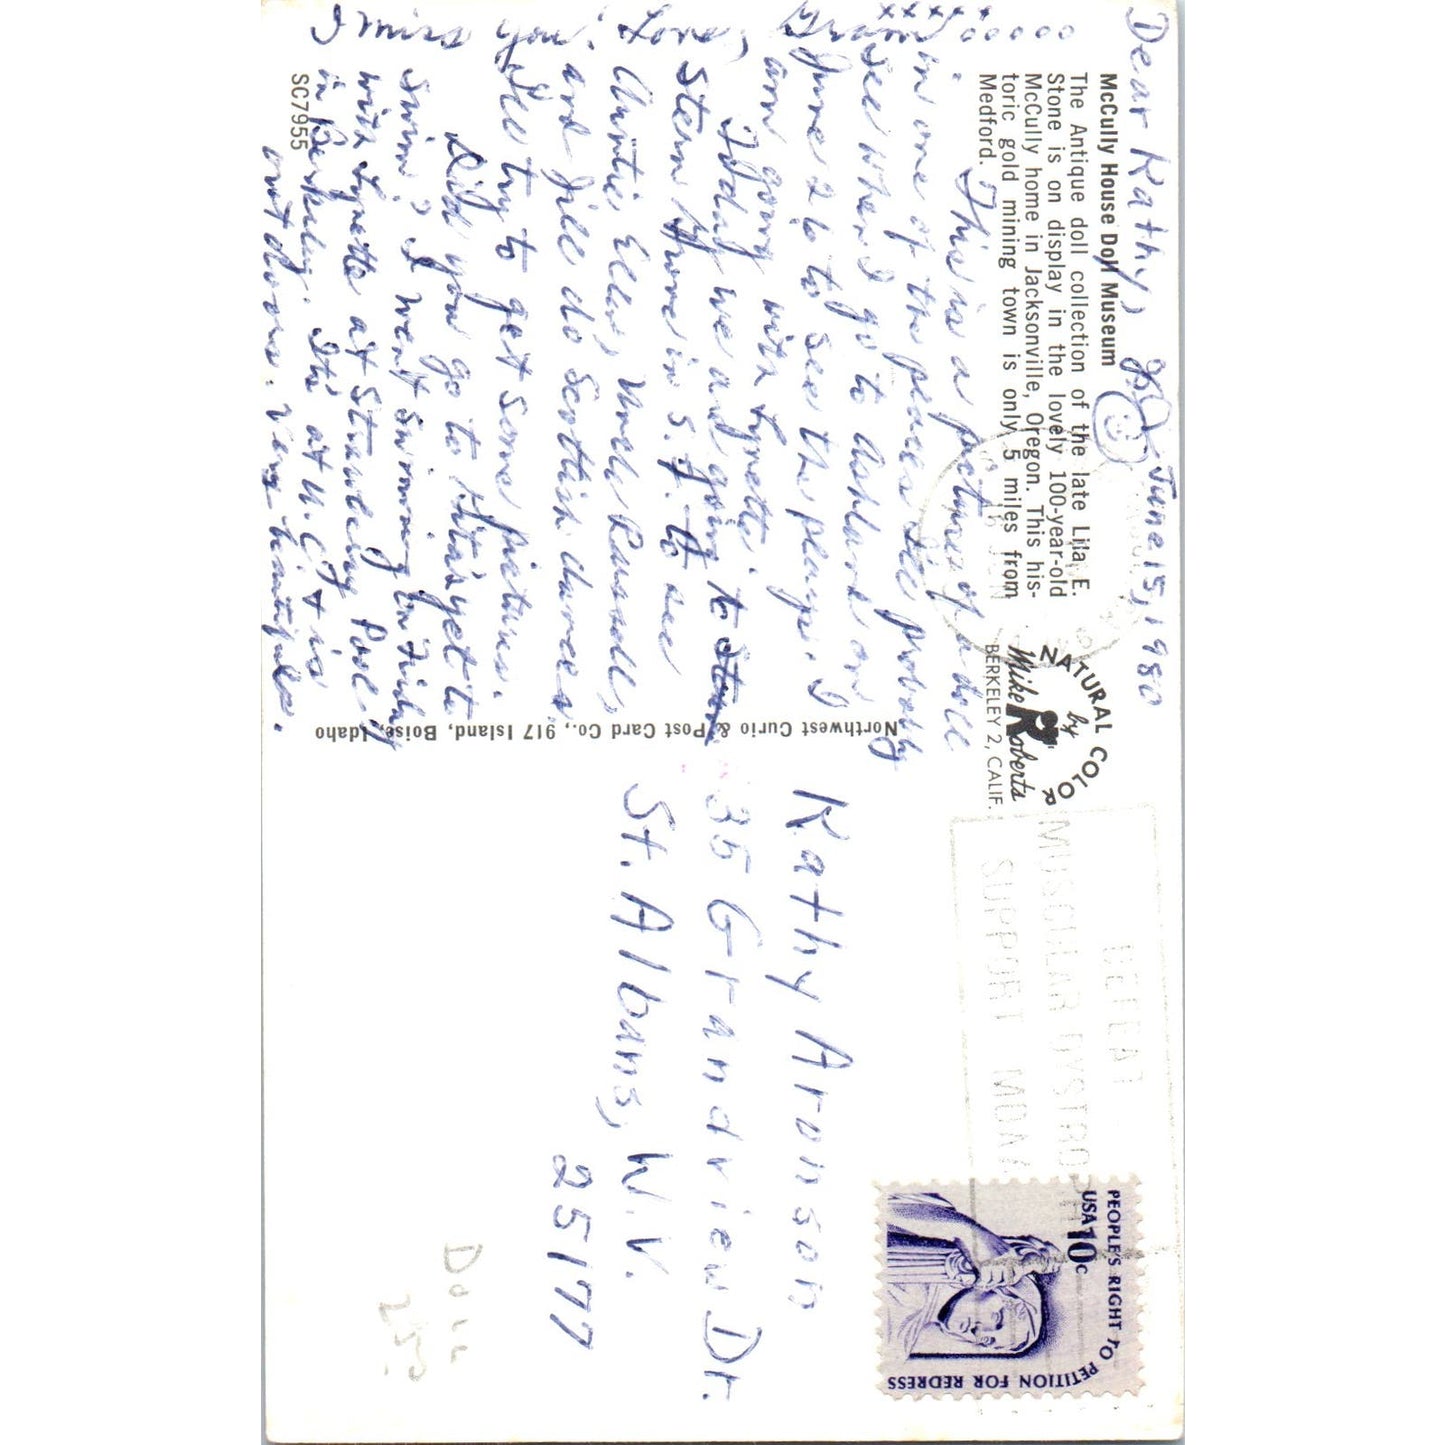 Dear Kathy, June 15, 1980
McCully House Doll Museum
The Antique doll collection of the late Lila E.
Stone is on display in the lovely 100-year-old
McCully home in Jacksonville, Oregon. This his-
toric gold mining town is only 5 miles from
Medford.
This is a picture of a doll
in one of the places I'll probably
see when I go to Ashland on
June 26 to see the plays. I
am going with Lynette.
Today we are going to Stern
Stern Grove in S.F. to see
Auntie Ella, Uncle Russell,
and Jill do Scottish dances.
I'll try to get some pictures.
Did you go to Rita's yet to
swim? I went swimming on Friday
with Lynette at Strawberry Pool
in Berkeley. It's at U.C. & is
out doors. Very beautiful.
I miss you! Love, Gram
xxxxx
ooooo
SC7955
Northwest Curio & Post Card Co., 917 Island, Boise, Idaho
NATURAL COLOR
by
Mike Roberts
BERKELEY 2, CALIF.
Kathy Aronson
35 Grandview Dr.
St. Albans, W.V.
25177
DEFEAT
MUSCULAR DYSTROPH
SUPPORT MDAA
PEOPLE'S RIGHT TO PETITION FOR REDRESS
USA 10c
Doll
250